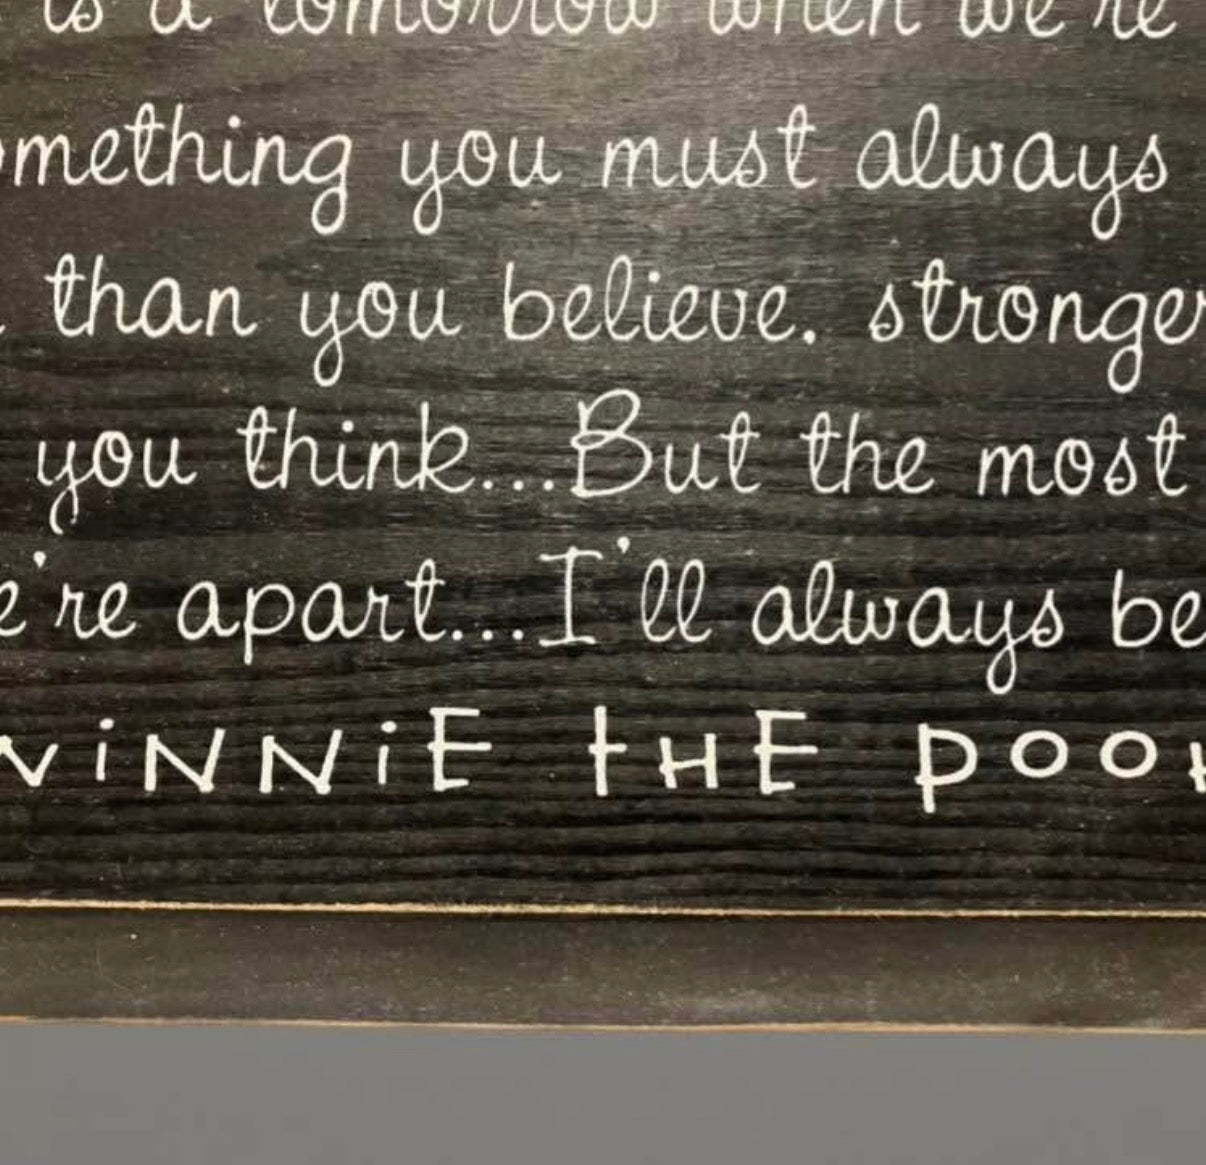 is a tomorrow when we're
omething you must always
than you believe. stronger
you think...But the most
e're apart...I'll always be
WiNNiE tHE POOH